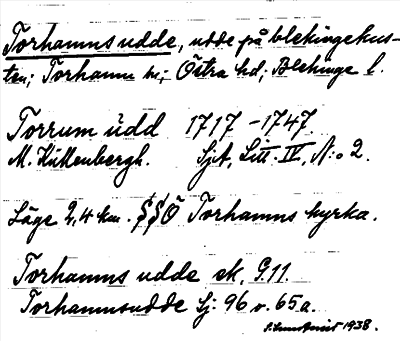 Torhamns udde, udde på blekingekus-
ten; Torhamn sn; Östra hd; Blekinge l.
Torrum üdd 1717-1747.
M. Küllenbergh. Sjt, Litt. IV, N:o 2.
Läge 2,4 km. SSÖ Torhamns kyrka.
Torhamns udde ek. G11.
Torhamnsudde Sj: 96 v. 65a.
1938.